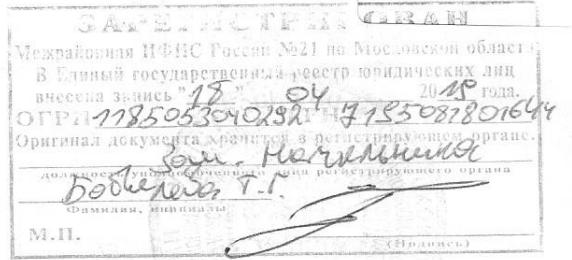 ЗАРЕГИСТРИРОВАН
Межрайонная ИФНС России №21 по Московской област
В Единый государственный реестр юридических лиц
внесена запись "18" 04 2019 года.
ОГРН 1185053040292
Оригинал документа хранится в регистрирующем органе.
Зам. Начальника
должность уполномоченного лица регистрирующего органа
Т.Г.
Фамилия, инициалы
М.П.
(Подпись)